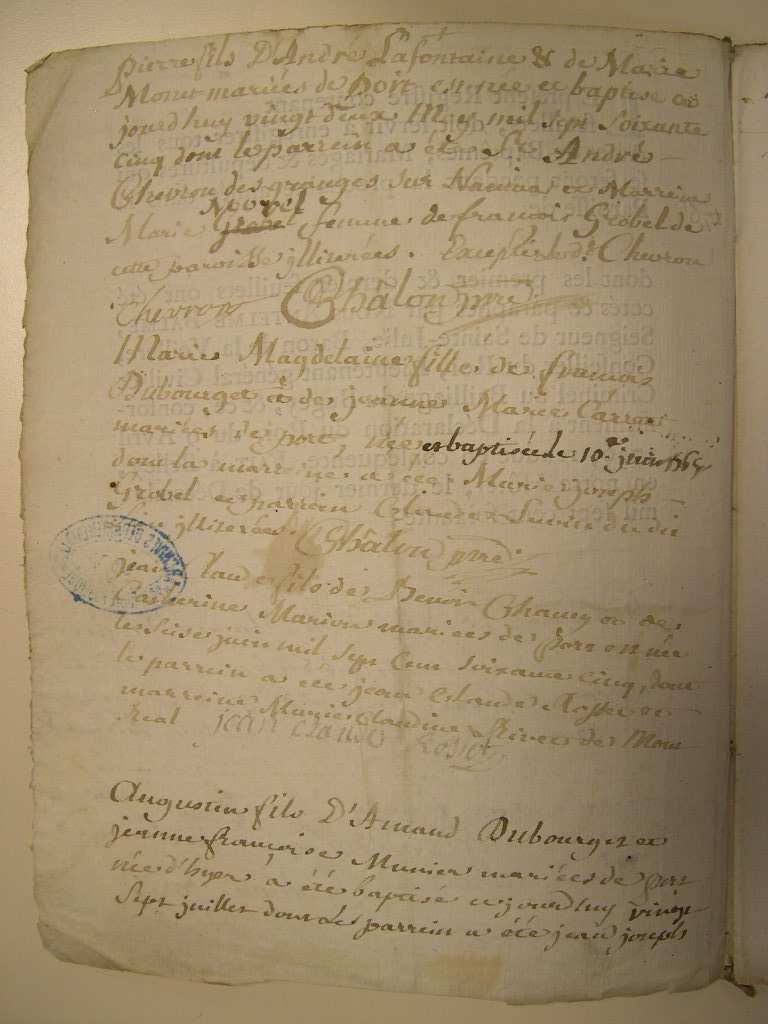 Pierre fils D'André Lafontaine & de Marie
Monet mariées de Port est née et baptisé ce
jourd'huy vingt deux May mil sept soixante
cinq dont le parrein a été Sr. André
Chevron des granges sur Nantua et Marreine
Nouvel
Marie femme de françois Grobel de
cette paroisse jlliterées. Excepté led. Sr. Chevron
Chevron Chalon pre
Marie Magdelaine fille de françois
Dubourget & de jeanne Marie Carron
mariées de port née et baptisée le 10 juin 1765
dont la marreine a été Marie joseph
Grobel et parrein Claude du di
lieu jlliterées. Chalon pre.
jean Claude fils de Benoit de
Catherine Marion mariées de port est née
le seise juin mil sept cent soixante cinq, dont
le parrein a été jean Claude Rosset et
marreine Marie Claudine Rivet de Mont
real jean claude Rosset
Augustin fils D'Amand Dubourget et
jeanne françoise Munier mariées de port
née d'hyer a été baptisé ce jourd'huy vingt
sept juillet dont le parrein a été jean joseph